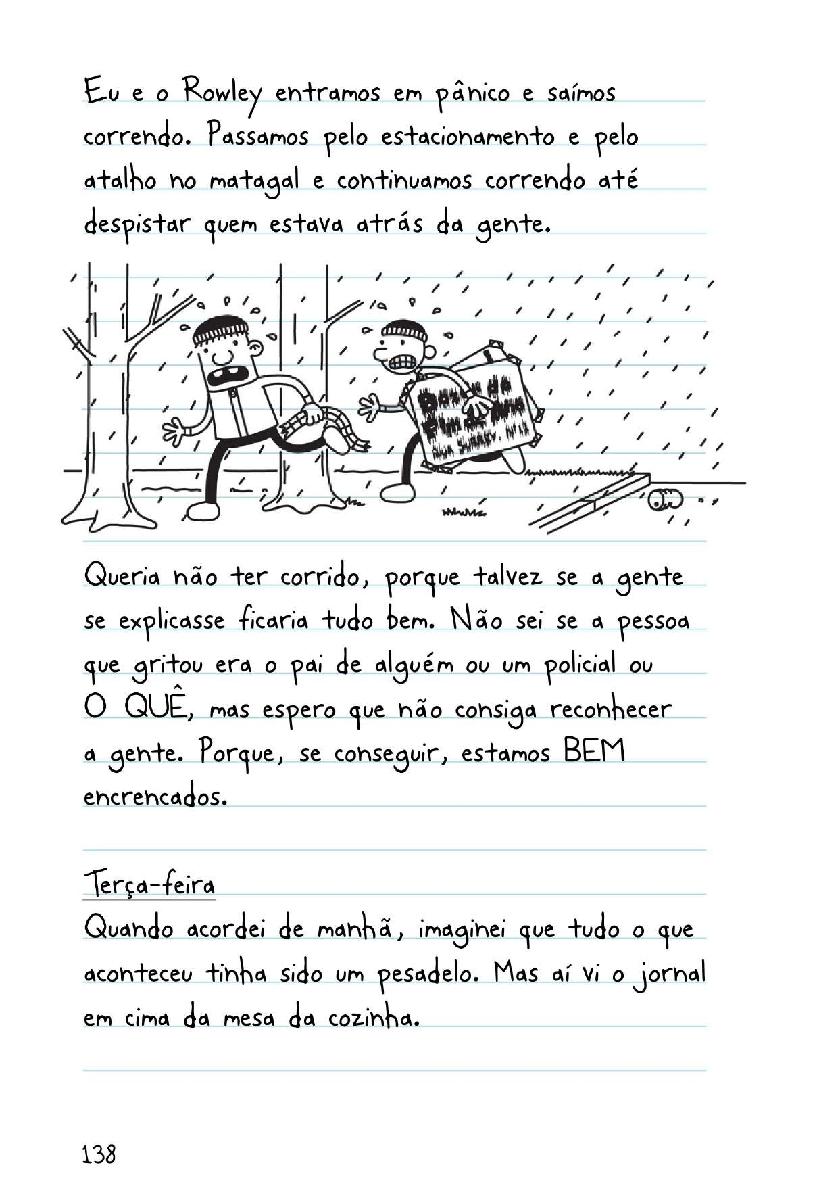 Eu e o Rowley entramos em pânico e saímos
correndo. Passamos pelo estacionamento e pelo
atalho no matagal e continuamos correndo até
despistar quem estava atrás da gente.
Queria não ter corrido, porque talvez se a gente
se explicasse ficaria tudo bem. Não sei se a pessoa
que gritou era o pai de alguém ou um policial ou
O QUÊ, mas espero que não consiga reconhecer
a gente. Porque, se conseguir, estamos BEM
encrencados.
Terça-feira
Quando acordei de manhã, imaginei que tudo o que
aconteceu tinha sido um pesadelo. Mas aí vi o jornal
em cima da mesa da cozinha.
138